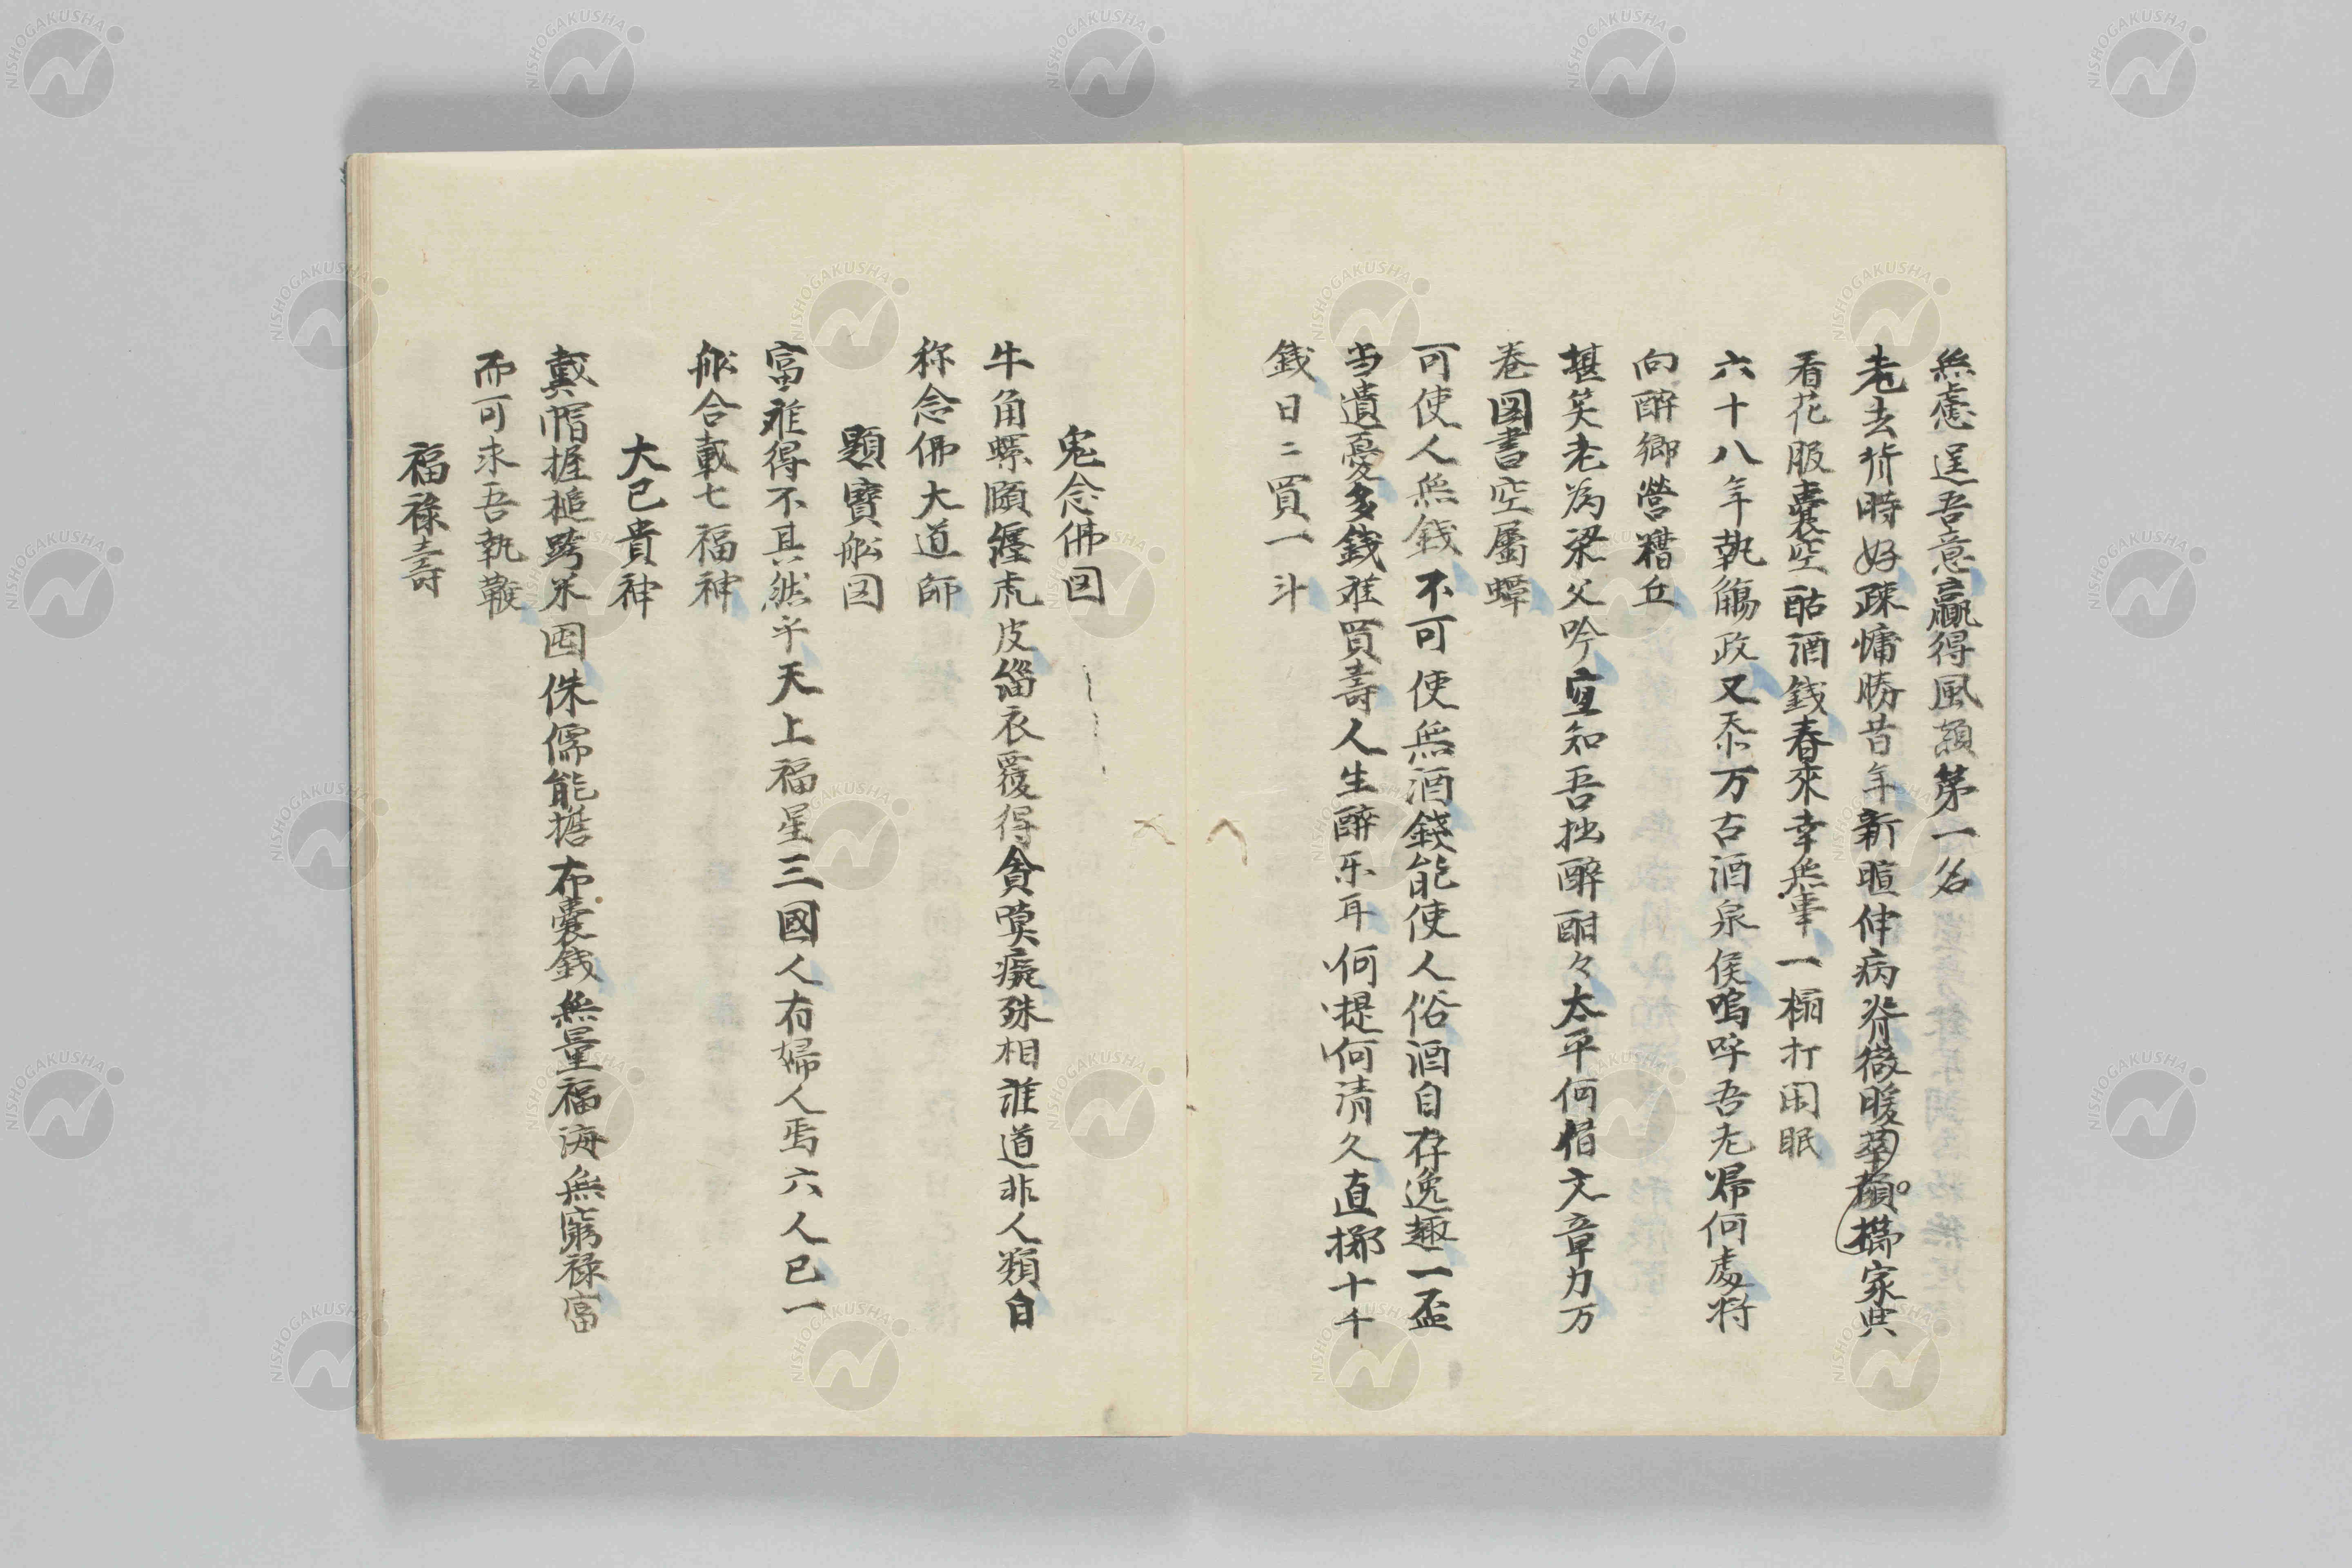 無慮逞吾意贏得風顛第一名
老去背時好疎慵勝昔年新暄伸病脊微暖華顛携家典
看花服囊空酤酒錢春來幸無事一榻打閑眠
六十八年執觴政又忝万古酒泉侯嗚呼吾老帰何處将
向醉鄉營糟丘
堪笑老為梁父吟寧知吾拙醉酣々太平何借文章力万
卷図書空屬蟫
可使人無錢不可使無酒錢能使人俗酒自存逸趣一盃
当遺憂多錢難買壽人生醉乐耳何提何清久直擲十千
錢日ニ買一斗
鬼念佛図
牛角螺頤纏虎皮緇衣覆得貪嗔癡殊相誰道非人類自
称念佛大道師
題寶舩図
富難得不其然乎天上福星三國人有婦人焉六人已一
舩合載七福神
大已貴神
戴帽握槌跨米囤侏儒能擔布囊錢無量福海無窮禄富
而可求吾執鞭
福禄壽
NISHOGAKUSHA